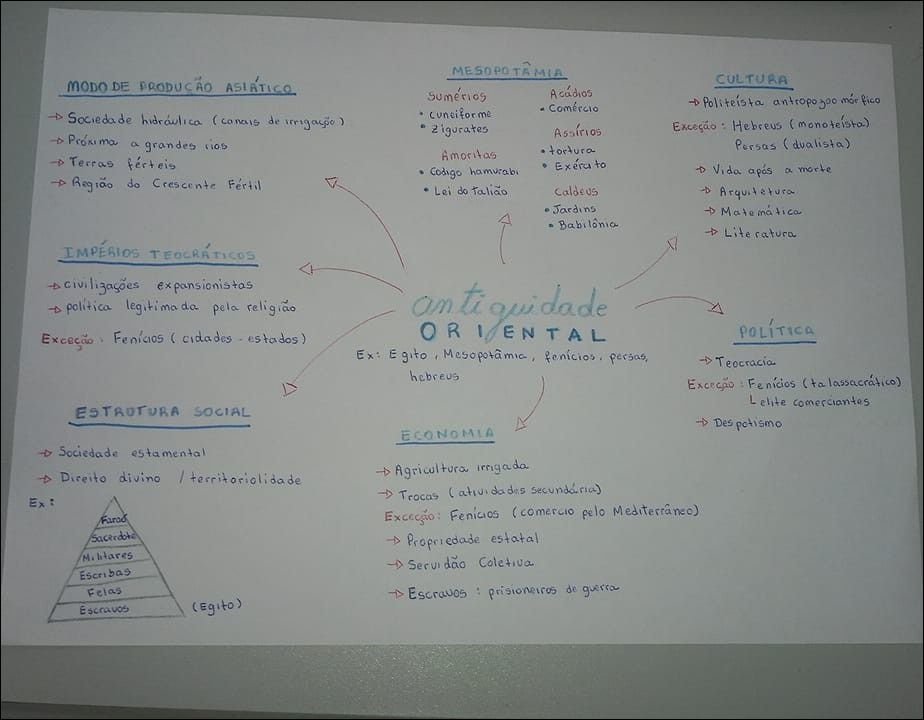 MODO DE PRODUÇÃO ASIÁTICO
→ Sociedade hidráulica (canais de irrigação)
→ Próxima a grandes rios
→ Terras férteis
→ Região do Crescente Fértil
MESOPOTÂMIA
Sumérios
• cuneiforme
• zigurates
Amoritas
• Código hamurabi
• Lei do talião
Acádios
• Comércio
Assírios
• tortura
• Exército
Caldeus
• Jardins
• Babilônia
CULTURA
→ Politeísta antropozoomórfico
Exceção: Hebreus (monoteísta)
Persas (dualista)
→ Vida após a morte
→ Arquitetura
→ Matemática
→ Literatura
IMPÉRIOS TEOCRÁTICOS
→ civilizações expansionistas
→ política legitimada pela religião
Exceção: Fenícios (cidades-estados)
antiguidade
ORIENTAL
Ex: Egito, Mesopotâmia, fenícios, persas,
hebreus
POLÍTICA
→ Teocracia
Exceção: Fenícios (talassacrático)
elite comerciantes
→ Despotismo
ESTRUTURA SOCIAL
→ Sociedade estamental
→ Direito divino / territoriolidade
Ex:
Faraó
Sacerdote
Militares
Escribas
Felas
Escravos
(Egito)
ECONOMIA
→ Agricultura irrigada
→ Trocas (atividades secundária)
Exceção: Fenícios (comercio pelo Mediterrâneo)
→ Propriedade estatal
→ Servidão Coletiva
→ Escravos: prisioneiros de guerra